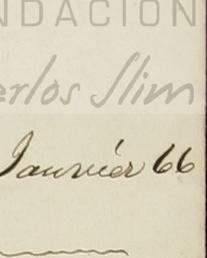 NDACIÓN
erlos Slim
Janvier 66